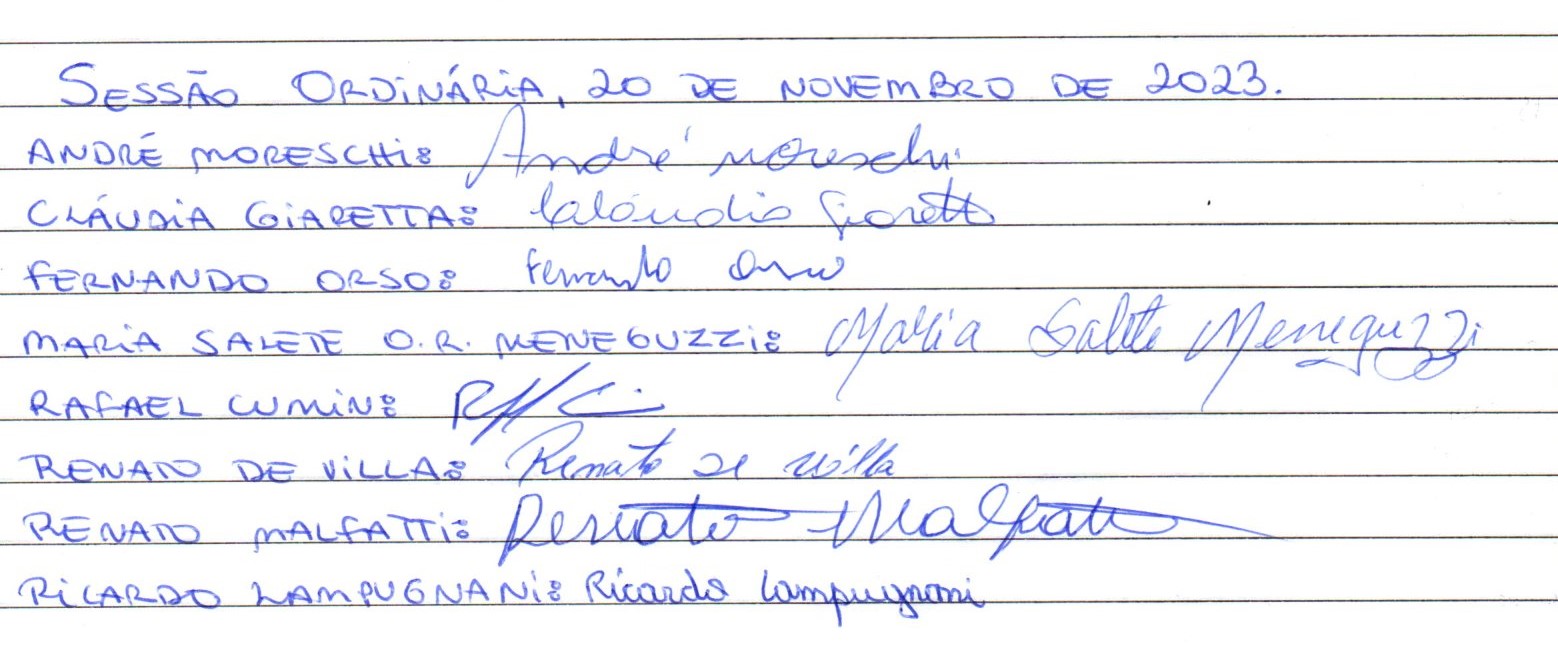 SESSÃO ORDINÁRIA, 20 DE NOVEMBRO DE 2023.
ANDRÉ MORESCHI: André Moreschi
CLÁUDIA GIARETTA: Claudia Giaretta
FERNANDO ORSO: Fernando Orso
MARIA SALETE O.R. MENEGUZZI: Maria Salete Meneguzzi
RAFAEL CUMIN:
RENATO DE VILLA: Renato De Villa
RENATO MALFATTI: Renato Malfatti
RICARDO LAMPUGNANI: Ricardo Lampugnani